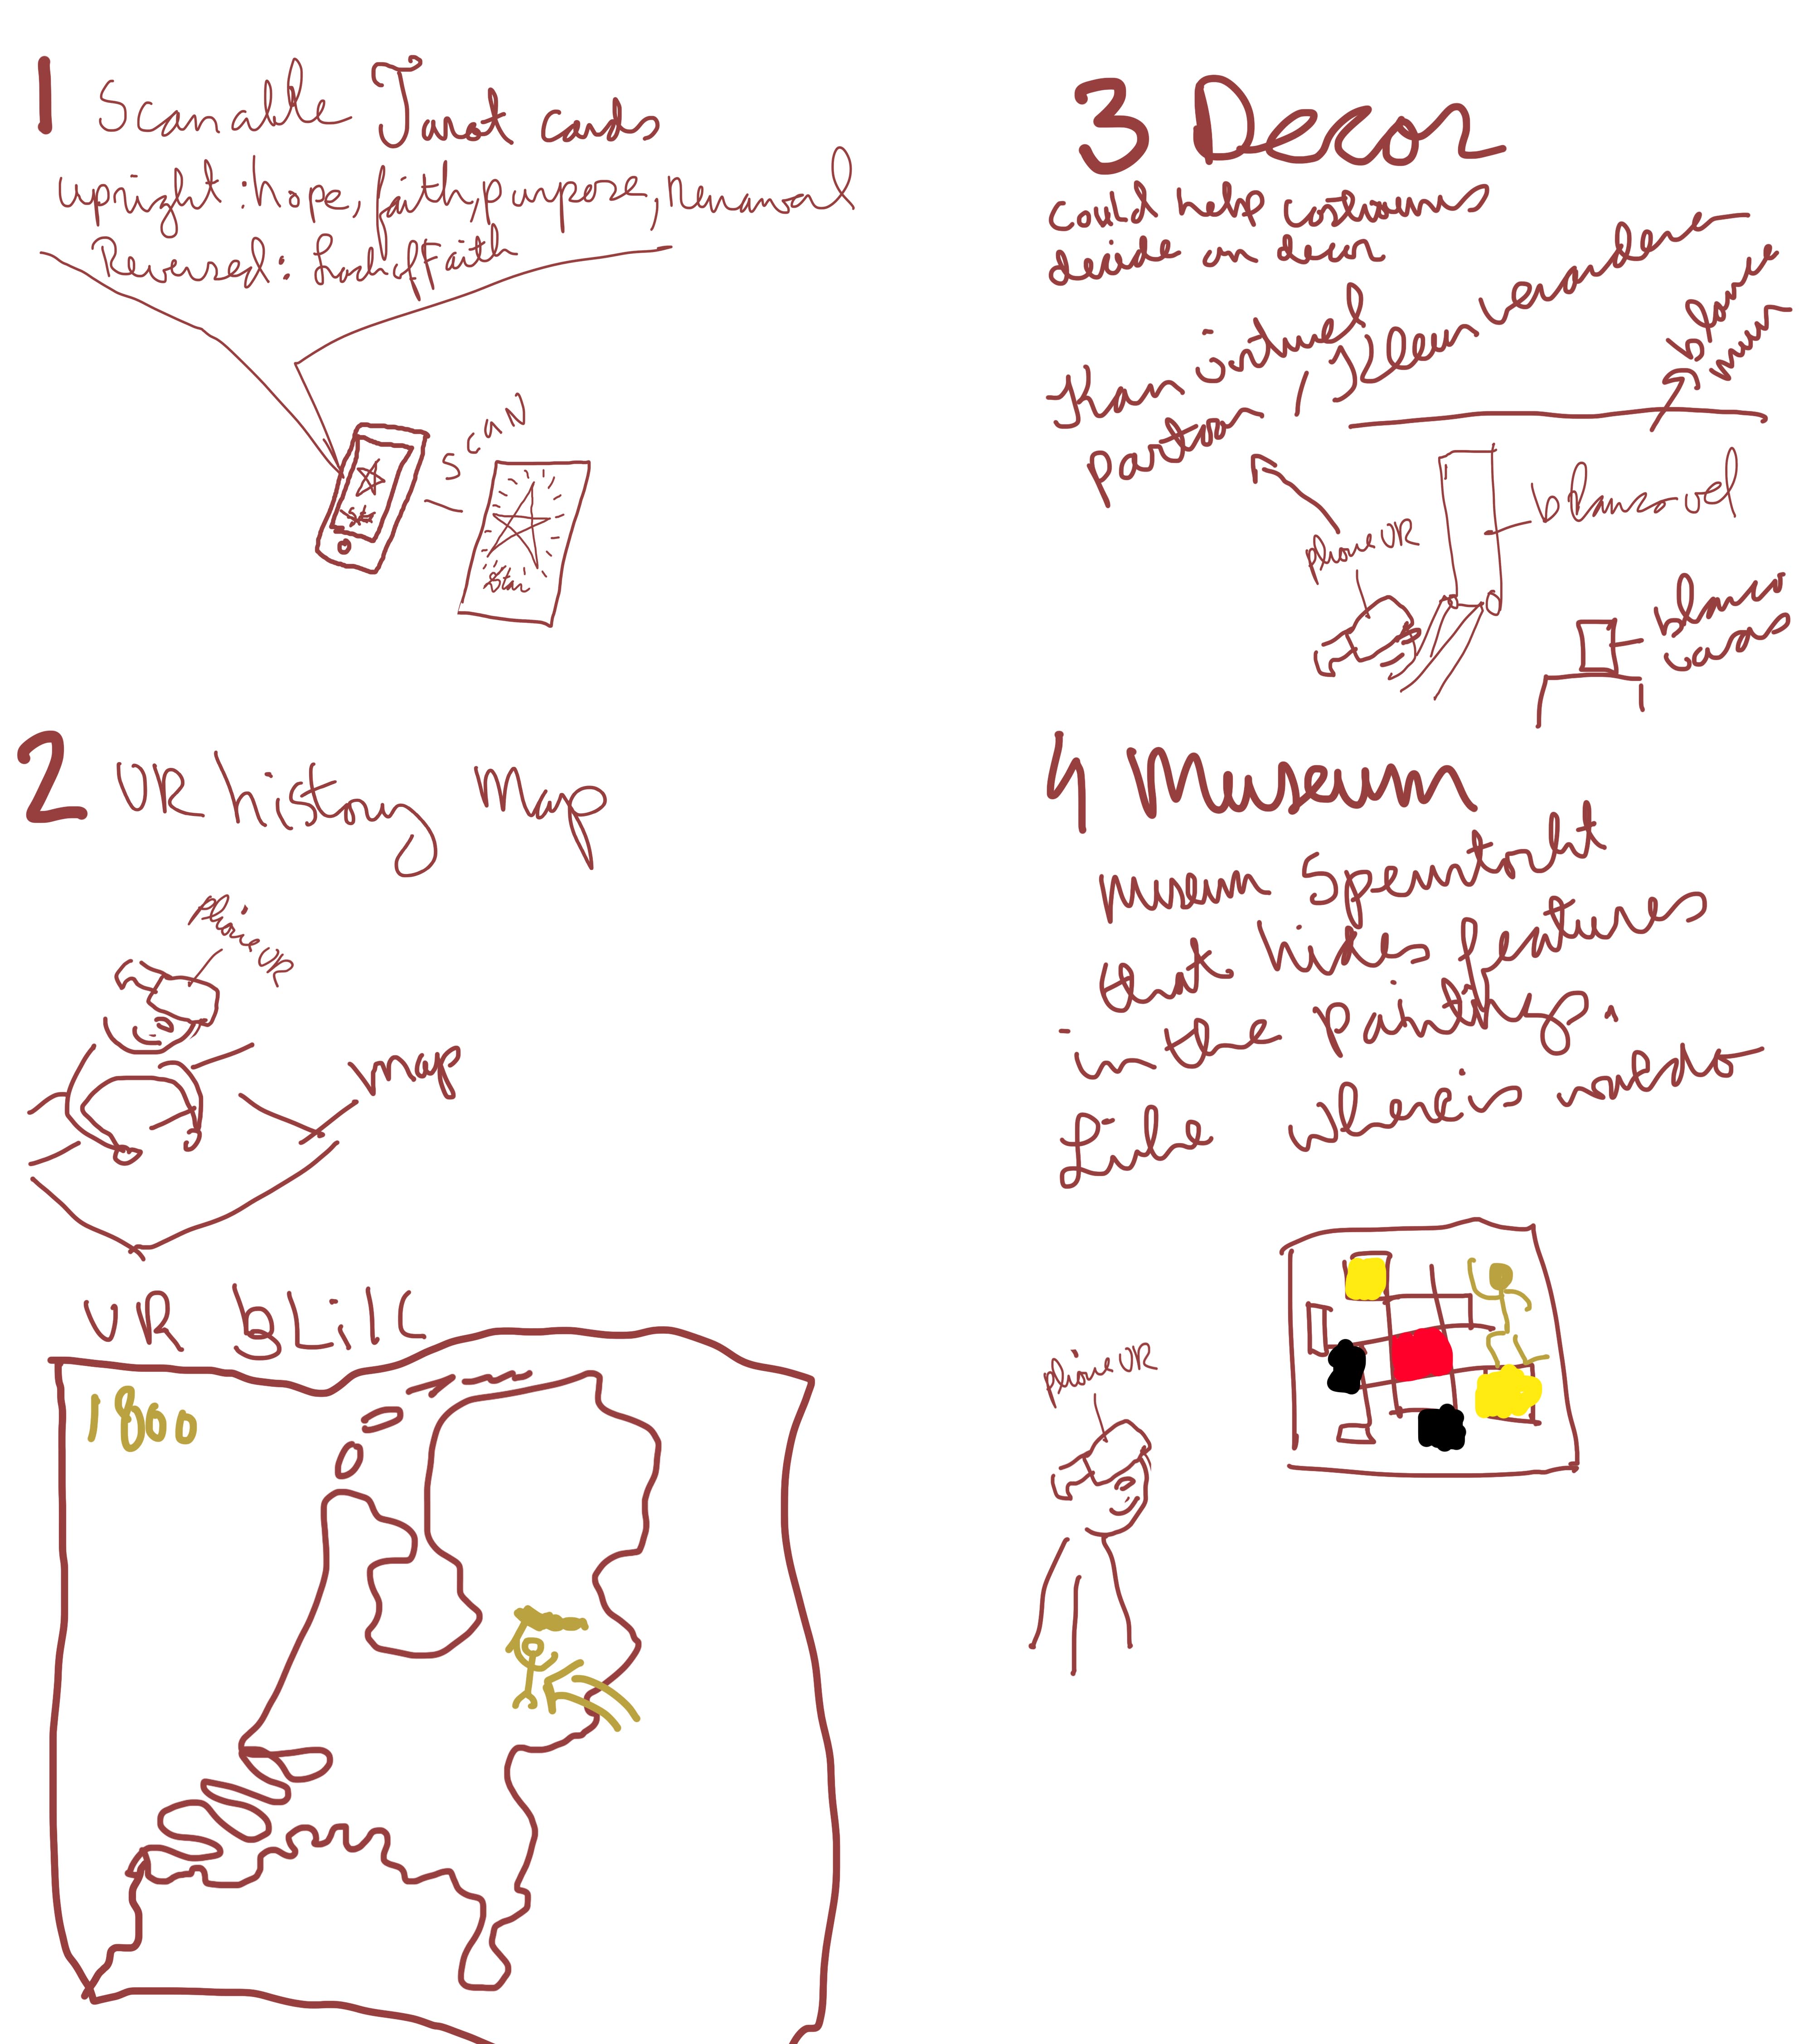 1 Scanable Tarot cards
upright: hope, faith, purpose, renewal
Reversed: Lack of faith
SCAN
Star
Star
2 VR history Map
phone VR
map
VR bLik
1800
3 Decor
could help costumers
decide on decor
from virtual
patron
phone VR
4 Museum
museum Speurtocht
that hides features
in the paintings.
Like where is waldo
phone VR